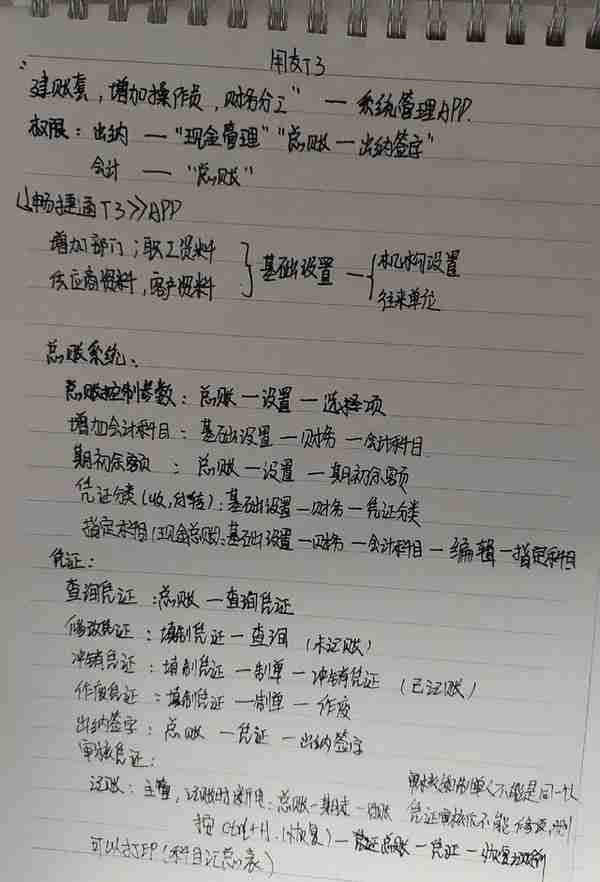 用友T3
建账套，增加操作员，财务分工" — 系统管理APP.
权限：出纳 — "现金管理" "总账 — 出纳签字"
会计 — "总账"
畅捷通T3>>APP
增加部门；职工资料
供应商资料，客户资料
基础设置 —
机构设置
往来单位
总账系统：
总账控制参数：总账 — 设置 — 选择项
增加会计科目：基础设置 — 财务 — 会计科目
期初余额：总账 — 设置 — 期初余额
凭证分类(收,付,转)：基础设置 — 财务 — 凭证分类
指定科目(现金总账)：基础设置 — 财务 — 会计科目 — 编辑 — 指定科目
凭证：
查询凭证：总账 — 查询凭证
修改凭证：填制凭证 — 查询 (未记账)
冲销凭证：填制凭证 — 制单 — 冲销凭证 (已记账)
作废凭证：填制凭证 — 制单 — 作废
出纳签字：总账 — 凭证 — 出纳签字
审核凭证：
审核和制单人不能是同一个人
凭证审核后不能修改,
记账：主管，记账时断电：总账 — 期末 —
按Ctrl+H (恢复) — 总账 — 凭证 — 恢复
可以打印 (科目汇总表)